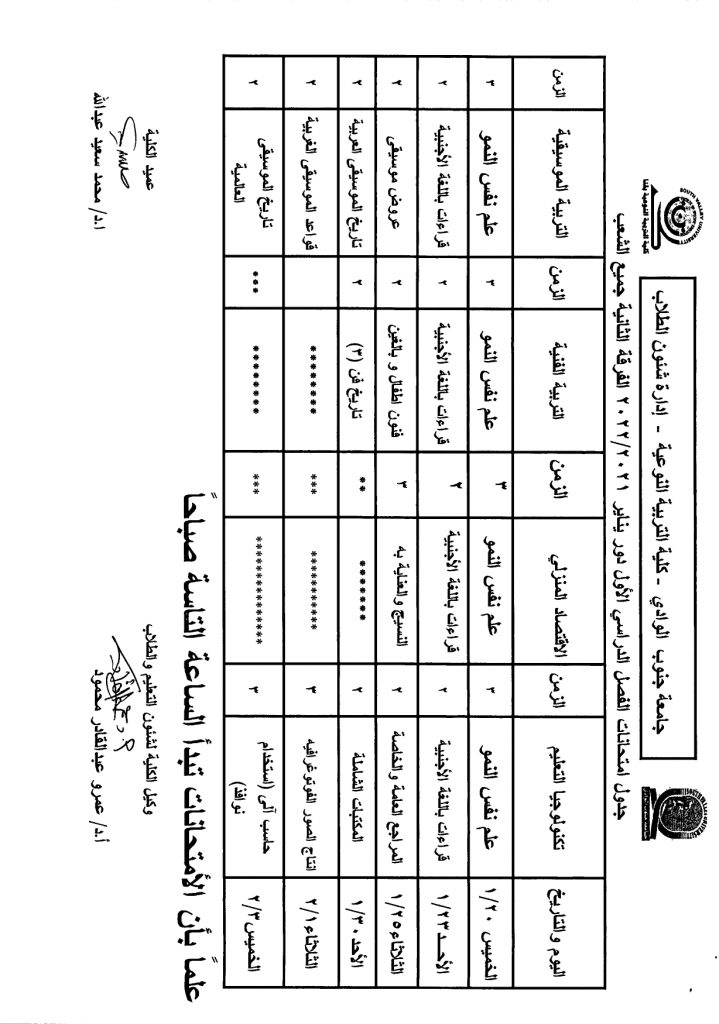 SOUTH VALLEY UNIVERSITY
كلية التربية النوعية بقنا
جامعة جنوب الوادي - كلية التربية النوعية - إدارة شئون الطلاب
جدول امتحانات الفصل الدراسي الأول دور يناير ٢٠٢٢/٢٠٢١ الفرقة الثانية جميع الشعب
اليوم والتاريخ | تكنولوجيا التعليم | الزمن | الاقتصاد المنزلي | الزمن | التربية الفنية | الزمن | التربية الموسيقية | الزمن
الخميس ١/٢٠ | علم نفس النمو | ٣ | علم نفس النمو | ٣ | علم نفس النمو | ٣ | علم نفس النمو | ٣
الأحد ١/٢٣ | قراءات باللغة الأجنبية | ٢ | قراءات باللغة الأجنبية | ٢ | قراءات باللغة الأجنبية | ٢ | قراءات باللغة الأجنبية | ٢
الثلاثاء ١/٢٥ | المراجع العامة والخاصة | ٢ | النسيج والعناية به | ٣ | فنون اطفال و بالغين | ٢ | عروض موسيقى | ٢
الأحد ١/٣٠ | المكتبات الشاملة | ٢ | ******* | ** | تاريخ فن (٣) | ٢ | تاريخ الموسيقى العربية | ٢
الثلاثاء ٢/١ | انتاج الصور الفوتوغرافيه | ٣ | ************ | *** | ******** | | قواعد الموسيقى الغربية | ٢
الخميس ٢/٣ | حاسب آلى (استخدام نوافذ) | ٣ | *************** | *** | ******** | *** | تاريخ الموسيقى العالمية | ٢
علماً بأن الأمتحانات تبدأ الساعة التاسة صباحاً
وكيل الكلية لشئون التعليم والطلاب
أ.د/ عمرو عبدالقادر محمود
عميد الكلية
ا.د/ محمد سعيد عبدالله